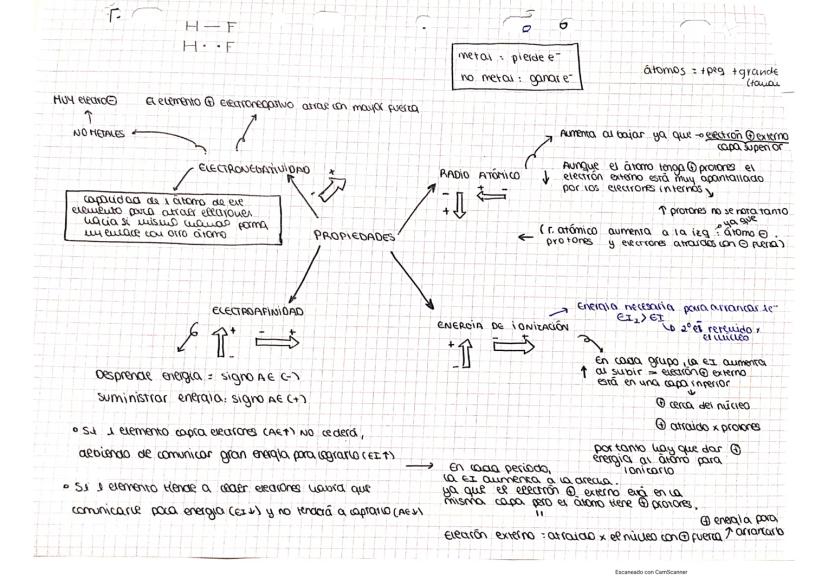 H — F
H · · F
metal : pierde e⁻
no metal : ganar e⁻
átomos = +peq +grande
MUY electro⊖
El elemento ⊕ electronegativo atrae con mayor fuerza
NO METALES
ELECTRONEGATIVIDAD
capacidad de 1 átomo de ese
elemento para atraer electrones
hacia sí mismo cuando forma
un enlace con otro átomo
PROPIEDADES
RADIO ATÓMICO
Aumenta al bajar ya que → electrón ⊕ externo
capa superior
Aunque el átomo tenga ⊕ protones el
electrón externo está muy apantallado
por los electrones internos
↑ protones no se nota tanto
ya que
← (r. atómico aumenta a la izq : átomo ⊖
protones y electrones atraidos con ⊖ fuerza)
ELECTROAFINIDAD
Desprende energía = signo AE (-)
suministrar energía: signo AE (+)
• Si 1 elemento capta electrones (AE↑) NO cederá,
debiendo de comunicar gran energía para lograrlo (EI↑)
• Si 1 elemento tiende a ceder electrones habrá que
comunicarle poca energía (EI↓) y no tenderá a captarlo (AE↓)
ENERGÍA DE IONIZACIÓN
Energía necesaria para arrancar 1e⁻
EI₂ > EI
2º es retenido x
el núcleo
En cada grupo, la EI aumenta
al subir = electrón ⊕ externo
está en una capa inferior
⊕ cerca del núcleo
⊕ atraido x protones
por tanto hay que dar ⊕
energía al átomo para
ionizarlo
→ En cada periodo,
la EI aumenta a la derecha.
ya que el electrón ⊕ externo está en la
misma capa pero el átomo tiene ⊕ protones.
electrón externo : atraido x el núcleo con ⊕ fuerza
⊕ energía para
↑ arrancarlo
Escaneado con CamScanner